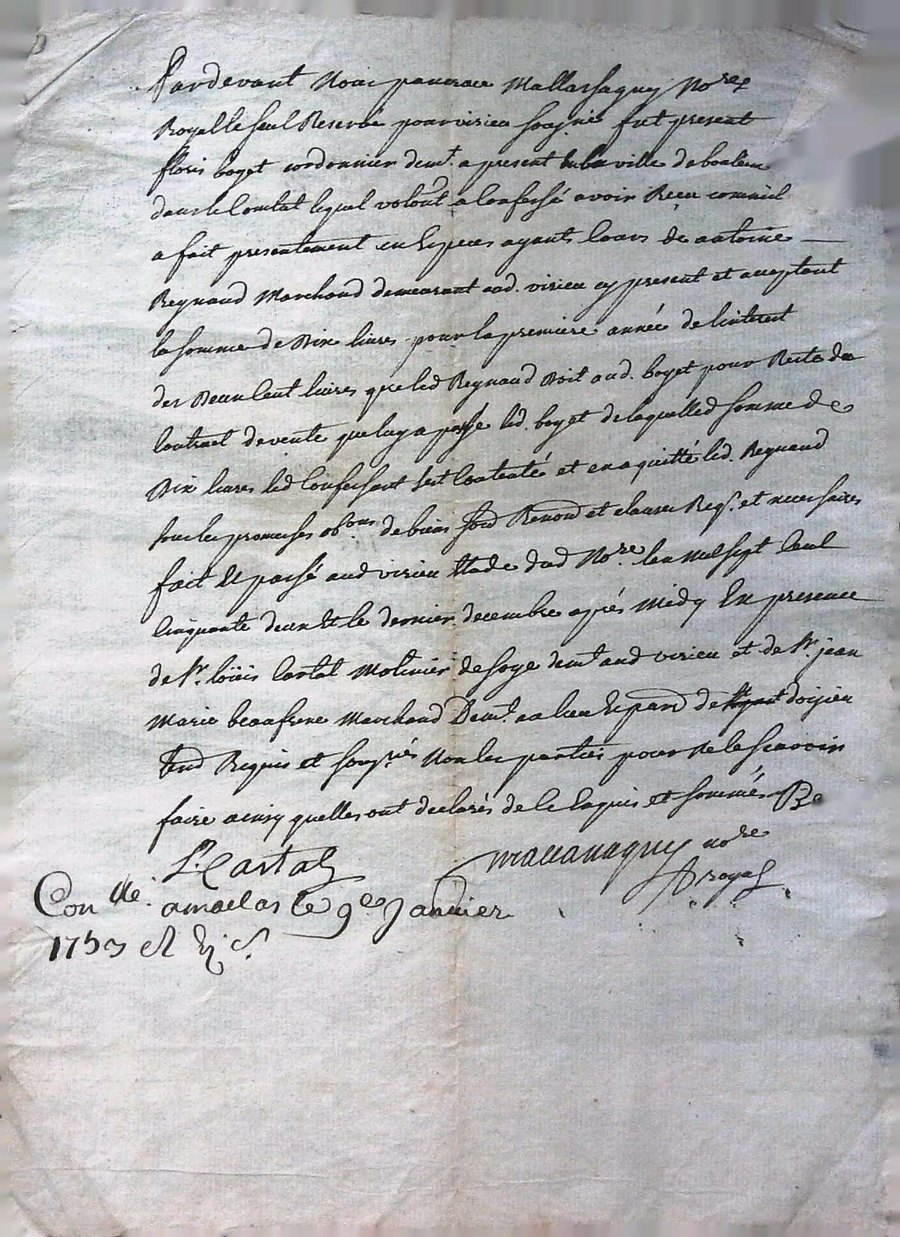 Pardevant Nous pancrace Mallassagny No.re
Royal le seul Reservé pour virieu sousigné fut present
floris boyet cordonnier demt. a present en la ville de
dans le Comtat lequel volont. a Confessé avoir Recu comme il
a fait presentement en Especes ayants Cours de antoine
Reynaud Marchand demeurant aud. virieu cy present et acceptant
la somme de Dix livres pour la premiere année de linterest
des Deux Cent livres que led Reynaud Doit aud. boyet pour Reste du
Contract de vente que luy a passé led. boyet de laquelle somme de
Dix livres led Confessant sest Contenté et en a quitté led. Reynaud
sous les promesses obons de biens Renond et clauses Reqs. et necessaires
fait Et passé aud virieu Etude dud No.re Lan Mil sept Cent
Cinquante deux Et le dernier decembre aprés Midy En presence
de Sr. loüis Cartal Molinier de soye demt aud virieu et de Sr. jean
Marie beaufrere Marchand Demt. au lieu Et par. de doizieu
Requis et sousnés Non les parties pour ne le scavoir
faire ainsy quelles ont declarés de ce Enquis et sommés
Ls. Cartal
mallassagny no.re
royal
Con.lle a maclas le 9e Janvier
1753